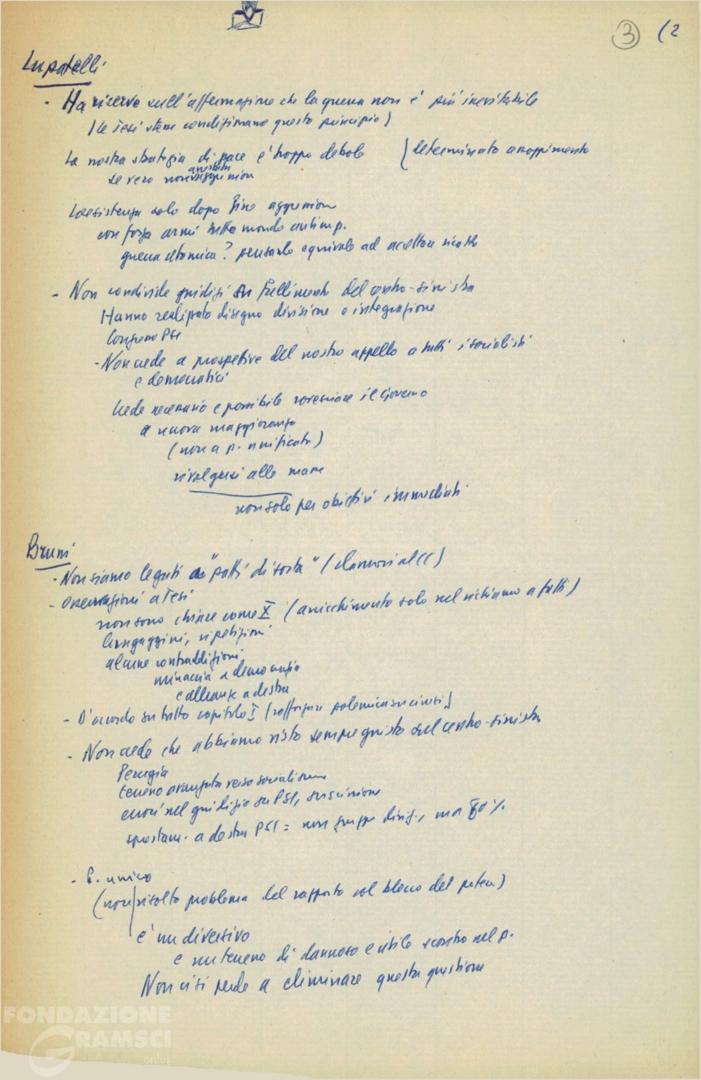 3 (2
Lupatelli
- Ha riserve sull'affermazione che la guerra non è più inevitabile
(le Tesi stesse condizionano questo principio)
La nostra strategia di pace è troppo debole (determinato
se vero
Coesistenza solo dopo fine aggressione
con forza armi mondo antimp.
guerra atomica? pensarlo equivale ad accettare ricatto
- Non condivide giudizi su fallimento del centro-sinistra
Hanno realizzato disegno divisione e integrazione
PSI
- Non crede a prospettive del nostro appello a tutti i socialisti
e democratici
Crede necessario e possibile rovesciare il Governo
a nuova maggioranza
(non a p. unificato)
rivolgersi alle masse
non solo per obiettivi immediati
Bruni
- Non siamo legati a "patti di sorta" ( al CC)
- Osservazioni a Tesi
non sono chiare come X (arricchimento solo nel richiamo a fatti)
lungaggini, ripetizioni
alcune contraddizioni
minaccia a democrazia
e alleanze a destra
- D'accordo su tutto capitolo I (rafforzare polemica su cinesi)
- Non crede che abbiamo visto sempre giusto sul centro-sinistra
Perugia
terreno avanzata verso socialismo
errori nel giudizio su PSI, su scissione
spostam. a destra PSI = non gruppo dirig., ma 80%
- P. unico
(non risolto problema del rapporto col blocco del potere)
è un diversivo
e un terreno di dannoso e utile scontro nel p.
Non ci si perde a eliminare questa questione
FONDAZIONE
GRAMSCI